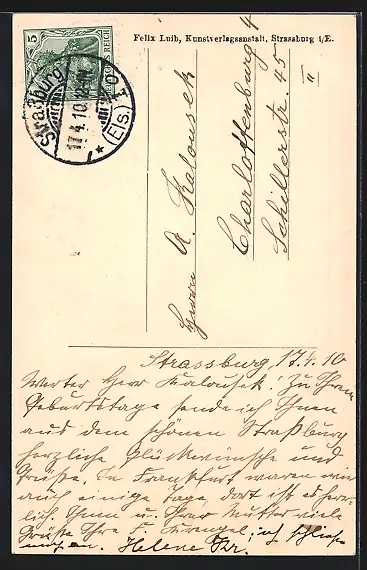 Felix Luib, Kunstverlagsanstalt, Strassburg i/E.
5
REICH
Strassburg
(Els.)
17.4.10
Herrn A. Kalousek
Charlottenburg 4
Schillerstr. 45 II
Strassburg, 17.4.10
Werter Herr Kalousek! Zu Ihrem
Geburtstage sende ich Ihnen
aus dem schönen Straßburg
herzliche Glückwünsche und
Grüße. In Frankfurt waren wir
auch einige Tage, dort ist es herr-
lich. Ihnen u. Ihrer Mutter viele
Grüße Ihre F. ich schließe
mich an. Helene